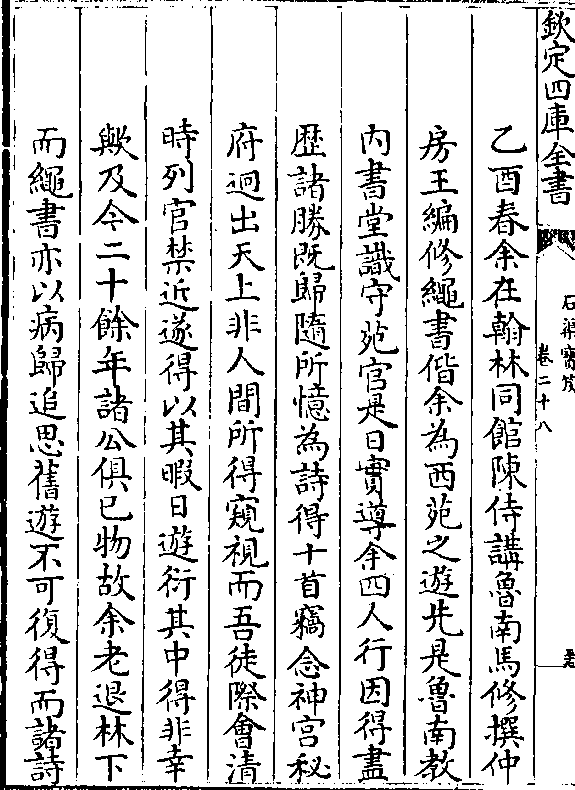 欽定四庫全書
石渠寳笈
卷二十八
乙酉春余在翰林同館陳侍講魯南馬修撰仲
房王編修繩書偕余為西苑之遊先是魯南教
內書堂識守苑官是日實導余四人行因得盡
歴諸勝既歸隨所憶為詩得十首竊念神宫秘
府迥出天上非人間所得窺視而吾徒際會清
時列官禁近遂得以其暇日遊衍其中得非幸
歟及今二十餘年諸公俱已物故余老退林下
而繩書亦以病歸追思舊遊不可復得而諸詩